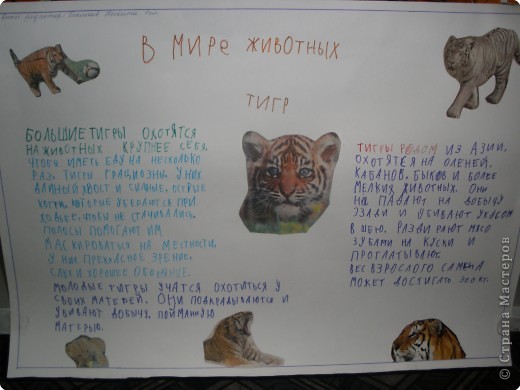 В МИРЕ ЖИВОТНЫХ
ТИГР
БОЛЬШИЕ ТИГРЫ ОХОТЯТСЯ
НА ЖИВОТНЫХ КРУПНЕЕ СЕБЯ,
ЧТОБЫ ИМЕТЬ ЕДУ НА НЕСКОЛЬКО
РАЗ. ТИГРЫ ГРАЦИОЗНЫ. У НИХ
ДЛИННЫЙ ХВОСТ И СИЛЬНЫЕ, ОСТРЫЕ
КОГТИ, КОТОРЫЕ УБЕРАЮТСЯ ПРИ
ХОДЬБЕ, ЧТОБЫ НЕ СТАЧИВАЛИСЬ.
ПОЛОСЫ ПОМОГАЮТ ИМ
МАСКИРОВАТЬСЯ НА МЕСТНОСТИ.
У НИХ ПРЕКРАСНОЕ ЗРЕНИЕ,
СЛУХ И ХОРОШЕЕ ОБОНЯНИЕ.
МОЛОДЫЕ ТИГРЫ УЧАТСЯ ОХОТИТЬСЯ У
СВОИХ МАТЕРЕЙ. ОНИ ПОДКРАДЫВАЮТСЯ И
УБИВАЮТ ДОБЫЧУ, ПОЙМАННУЮ
МАТЕРЬЮ.
ТИГРЫ РОДОМ ИЗ АЗИИ.
ОХОТЯТСЯ НА ОЛЕНЕЙ,
КАБАНОВ, БЫКОВ И БОЛЕЕ
МЕЛКИХ ЖИВОТНЫХ. ОНИ
НАПАДАЮТ НА ДОБЫЧУ
СЗАДИ И УБИВАЮТ УКУСОМ
В ШЕЮ. РАЗДИРАЮТ МЯСО
ЗУБАМИ НА КУСКИ И
ПРОГЛАТЫВАЮТ.
ВЕС ВЗРОСЛОГО САМЦА
МОЖЕТ ДОСТИГАТЬ
© Страна Мастеров